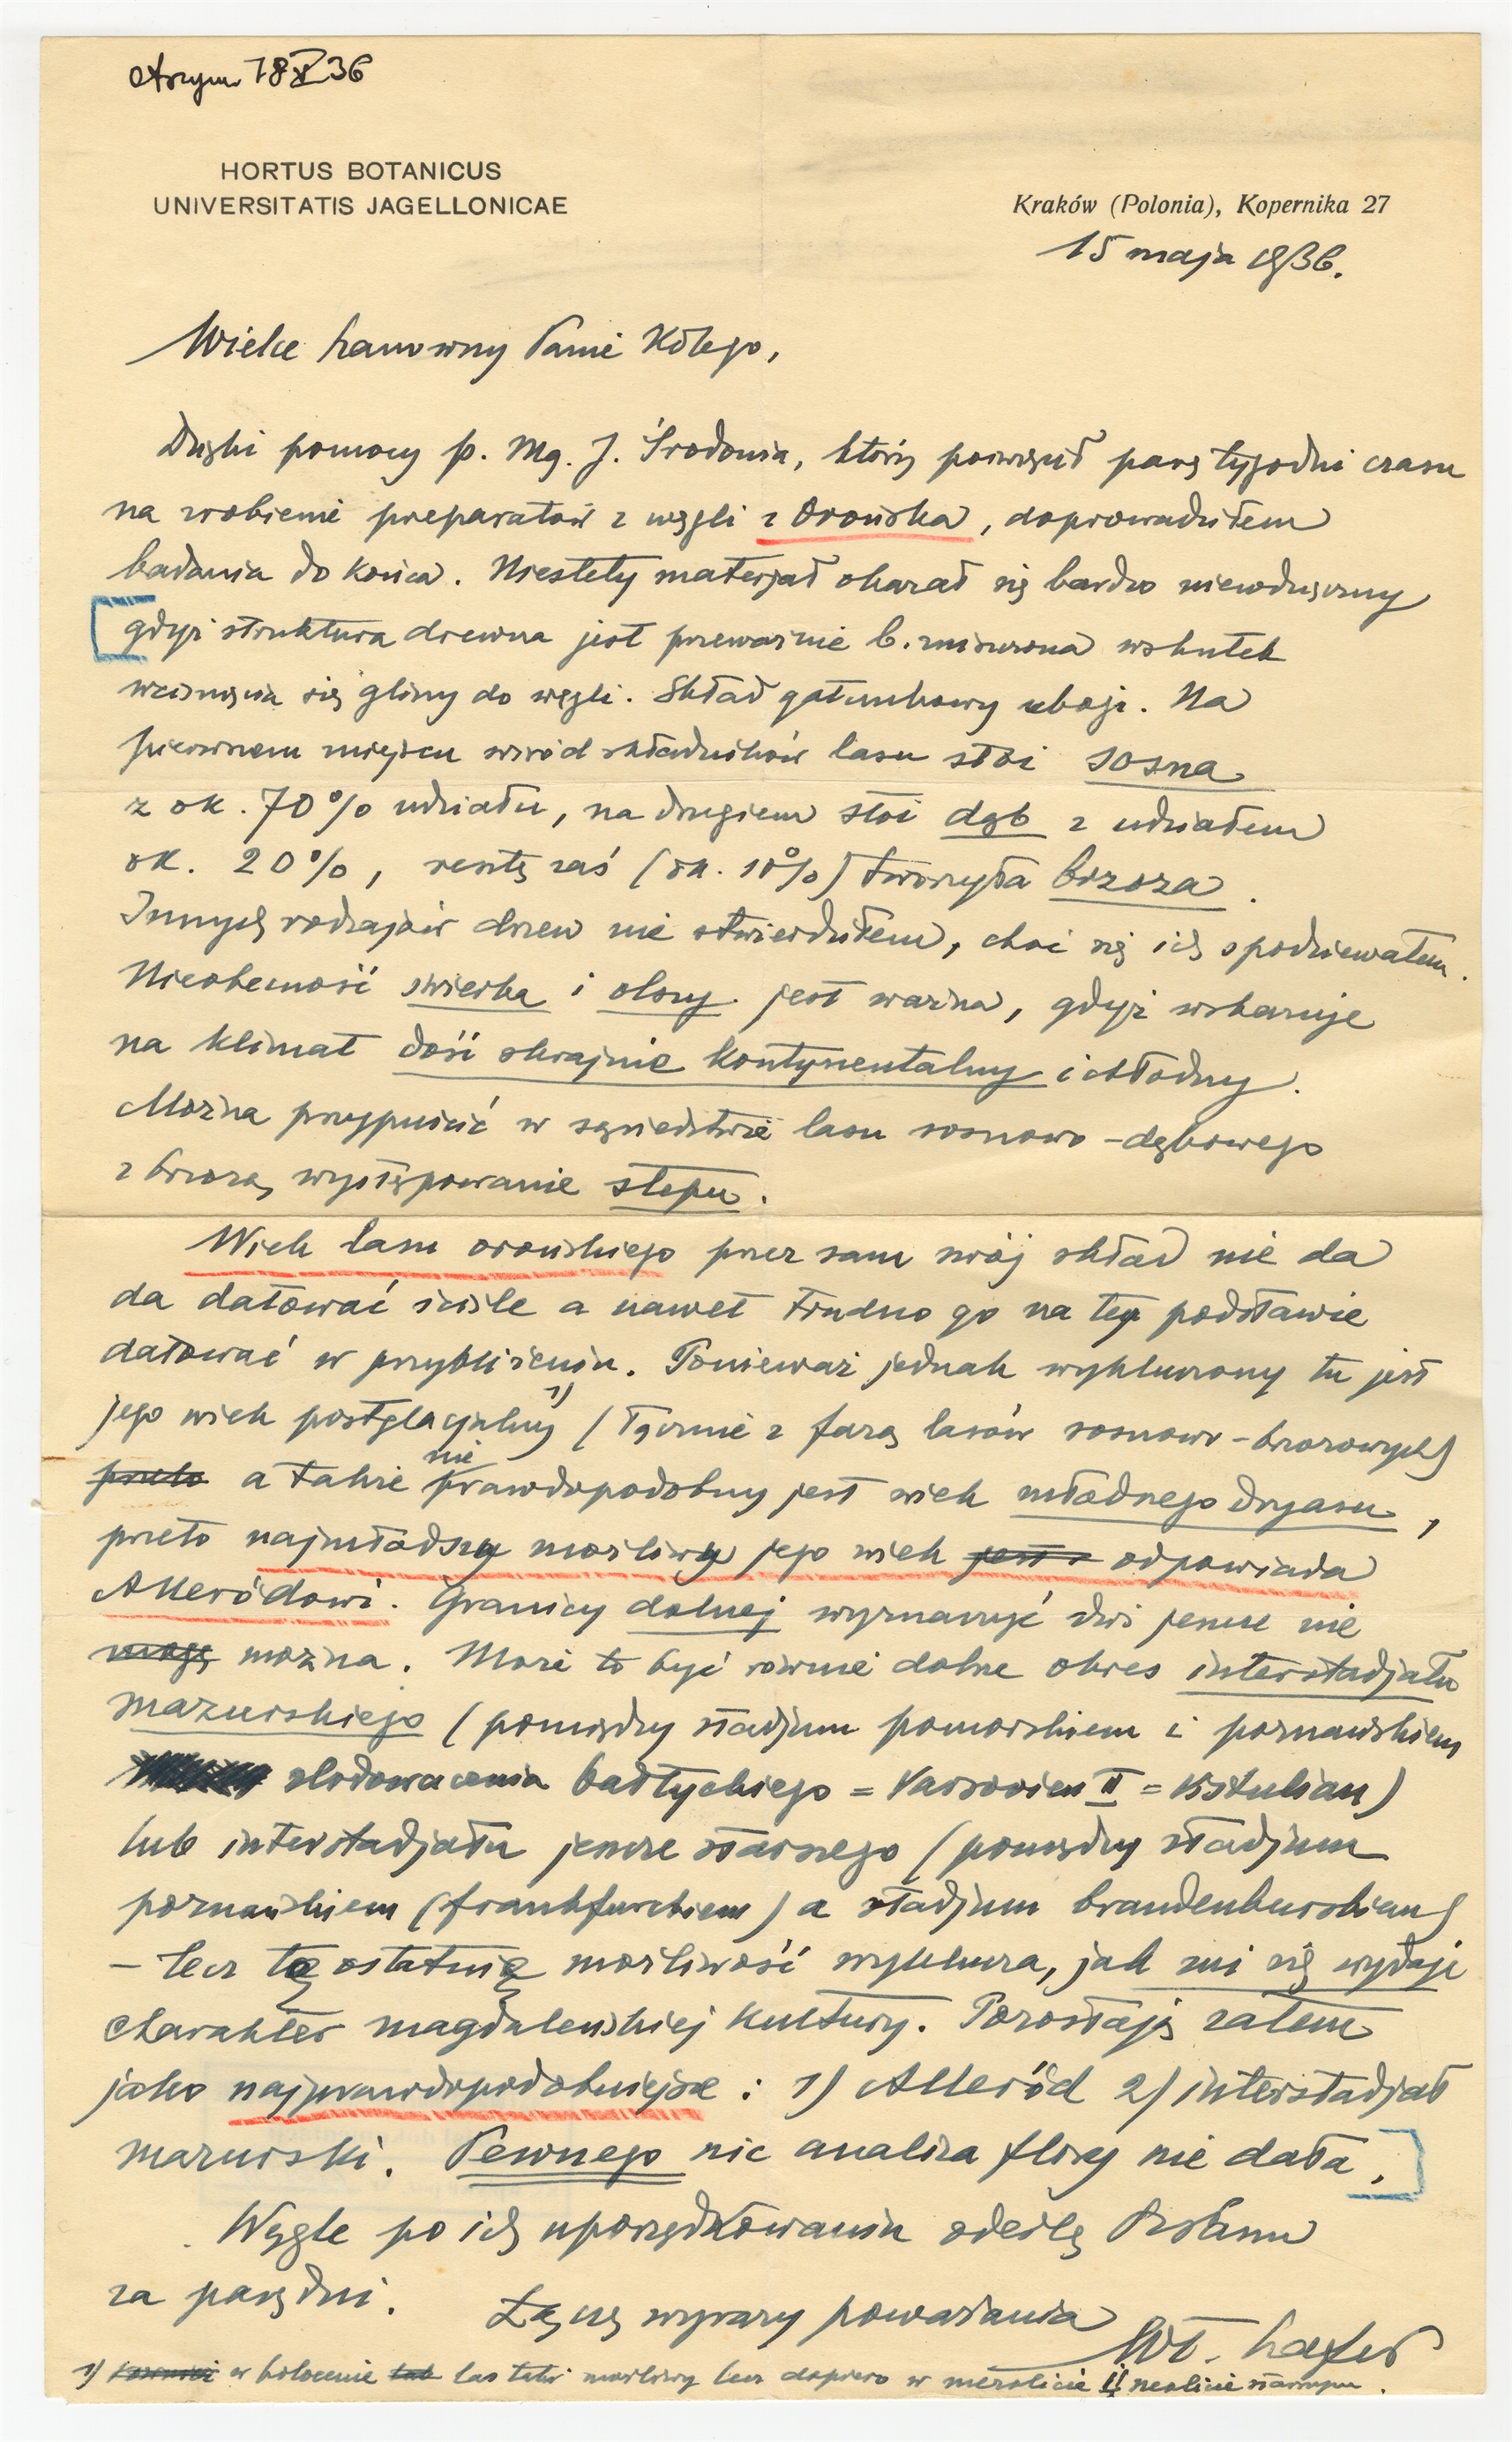 Otrzym. 18 V 36
HORTUS BOTANICUS
UNIVERSITATIS JAGELLONICAE
Kraków (Polonia), Kopernika 27
15 maja 1936.
Wielce Szanowny Panie Kolego,
Dzięki pomocy p. Mg. J. Środonia, który poświęcił parę tygodni czasu
na zrobienie preparatów z węgli z Orońska, doprowadziłem
badania do końca. Niestety materjał okazał się bardzo niewdzięczny
gdyż struktura drewna jest przeważnie b. zniszczona wskutek
wciśnięcia się gliny do węgli. Skład gatunkowy ubogi. Na
pierwszem miejscu wśród składników lasu stoi sosna
z ok. 70% udziału, na drugiem stoi dąb z udziałem
ok. 20%, resztę zaś (ok. 10%) tworzyła brzoza.
Innych rodzajów drzew nie stwierdziłem, choć się ich spodziewałem.
Nieobecność świerka i olszy jest ważna, gdyż wskazuje
na klimat dość skrajnie kontynentalny i chłodny.
Można przypuścić w sąsiedztwie lasu sosnowo-dębowego
z brzozą występowanie stepu.
Wiek lasu orońskiego przez sam swój skład nie da
da datować ściśle a nawet trudno go na tej podstawie
datować w przybliżeniu. Ponieważ jednak wykluczony tu jest
jego wiek postglacjalny 1) (łącznie z fazą lasów sosnowo-brzozowych)
przeto a także nieprawdopodobny jest wiek młodszego dryasu,
przeto najmłodszy możliwy jego wiek jest odpowiada
Alleródowi. Granicy dolnej wyznaczyć dziś jeszcze nie
mogę można. Może to być równie dobrze okres interstadjału
mazurskiego (pomiędzy stadjum pomorskiem i poznańskiem
zlodowacenia bałtyckiego = Varsovien II = Vistulian)
lub interstadjału jeszcze starszego (pomiędzy stadjum
poznańskiem (frankfurckiem) a stadjum brandenburskiem)
– lecz tę ostatnią możliwość wyklucza, jak mi się wydaje
charakter magdaleńskiej kultury. Pozostają zatem
jako najprawdopodobniejsze: 1) Alleröd 2) interstadjał
mazurski. Pewnego nic analiza flory nie dała.
Węgle po ich uporządkowaniu odeślę Panu
za parę dni. Łączę wyrazy poważania
Wł. Szafer
1) w holocenie lub las taki możliwy lecz dopiero w mezolicie i neolicie starszym.